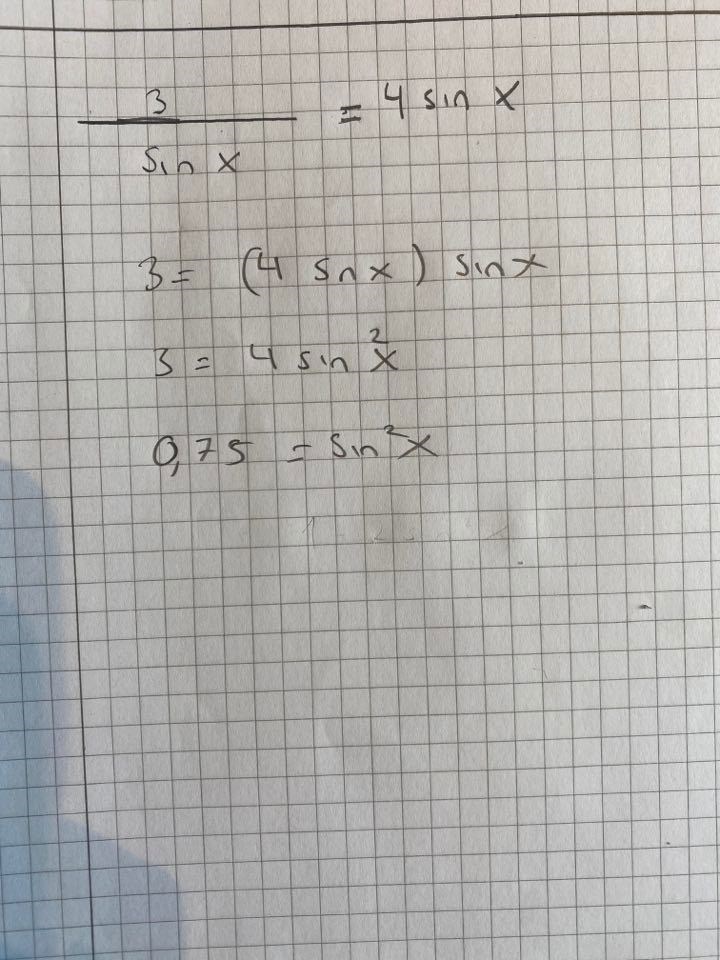 3 / sin x = 4 sin x
3 = (4 sn x) sin x
3 = 4 sin² x
0,75 = sin² x